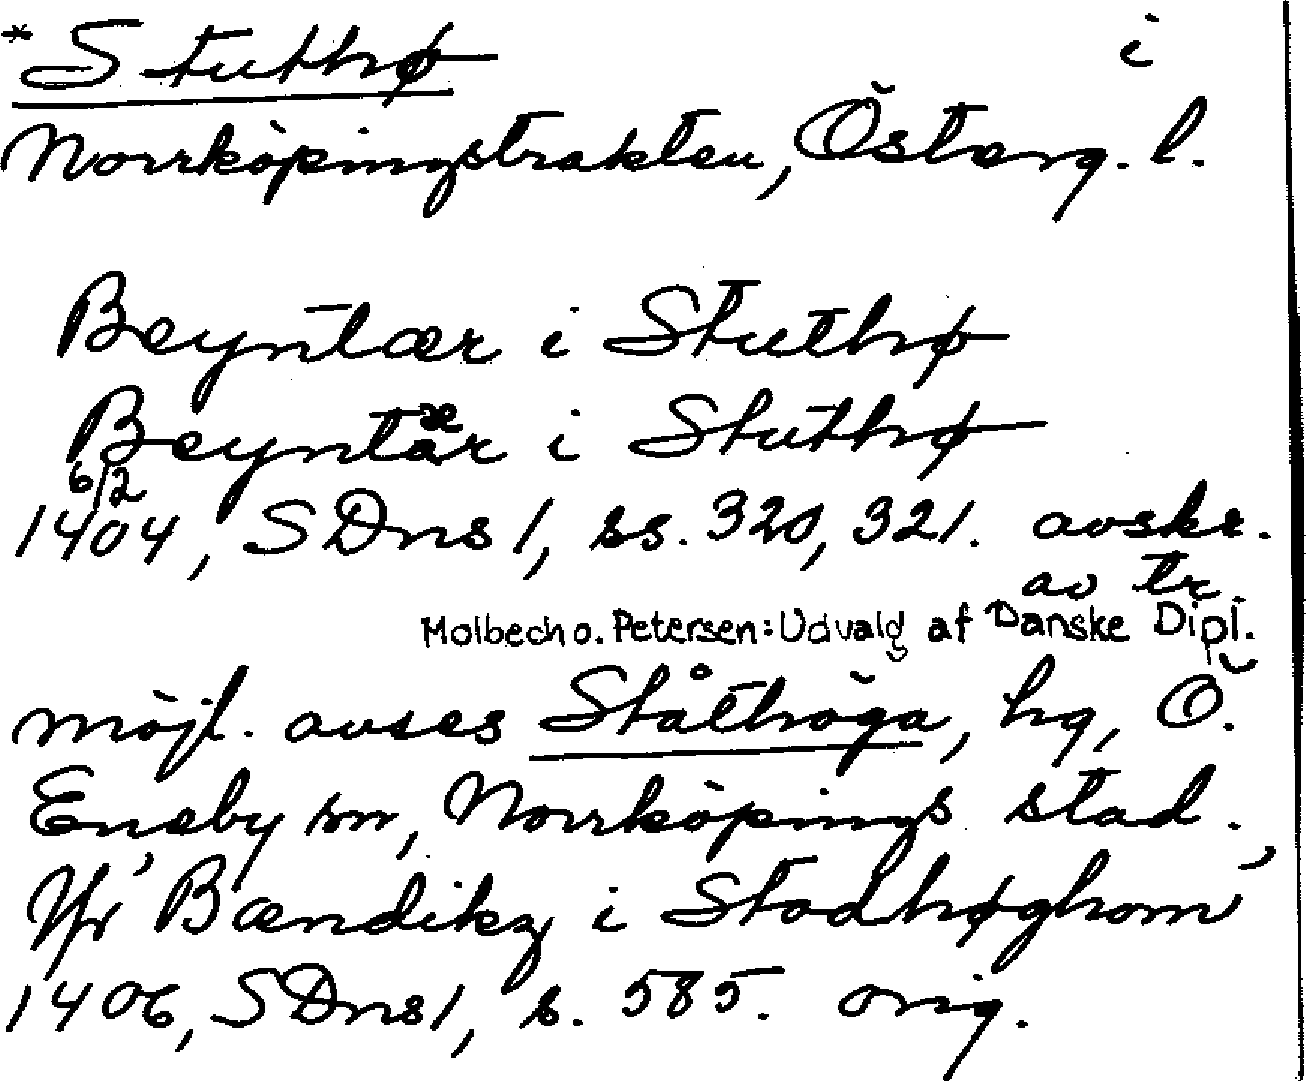 *Stuthø i
Norrköpingstrakten, Österg. l.
Beyntær i Stuthø
Beyntär i Stuthø
æ
6/2
1404, SDns 1, ss. 320, 321. avskr.
av tr.
Molbech o. Petersen: Udvalg af Danske Dipl.
möjl. avses Ståthöga, hg, Ö.
Eneby sn, Norrköpings stad.
Jfr 'Bændikz i Stadhøghom',
1406, SDns 1, s. 585. orig.